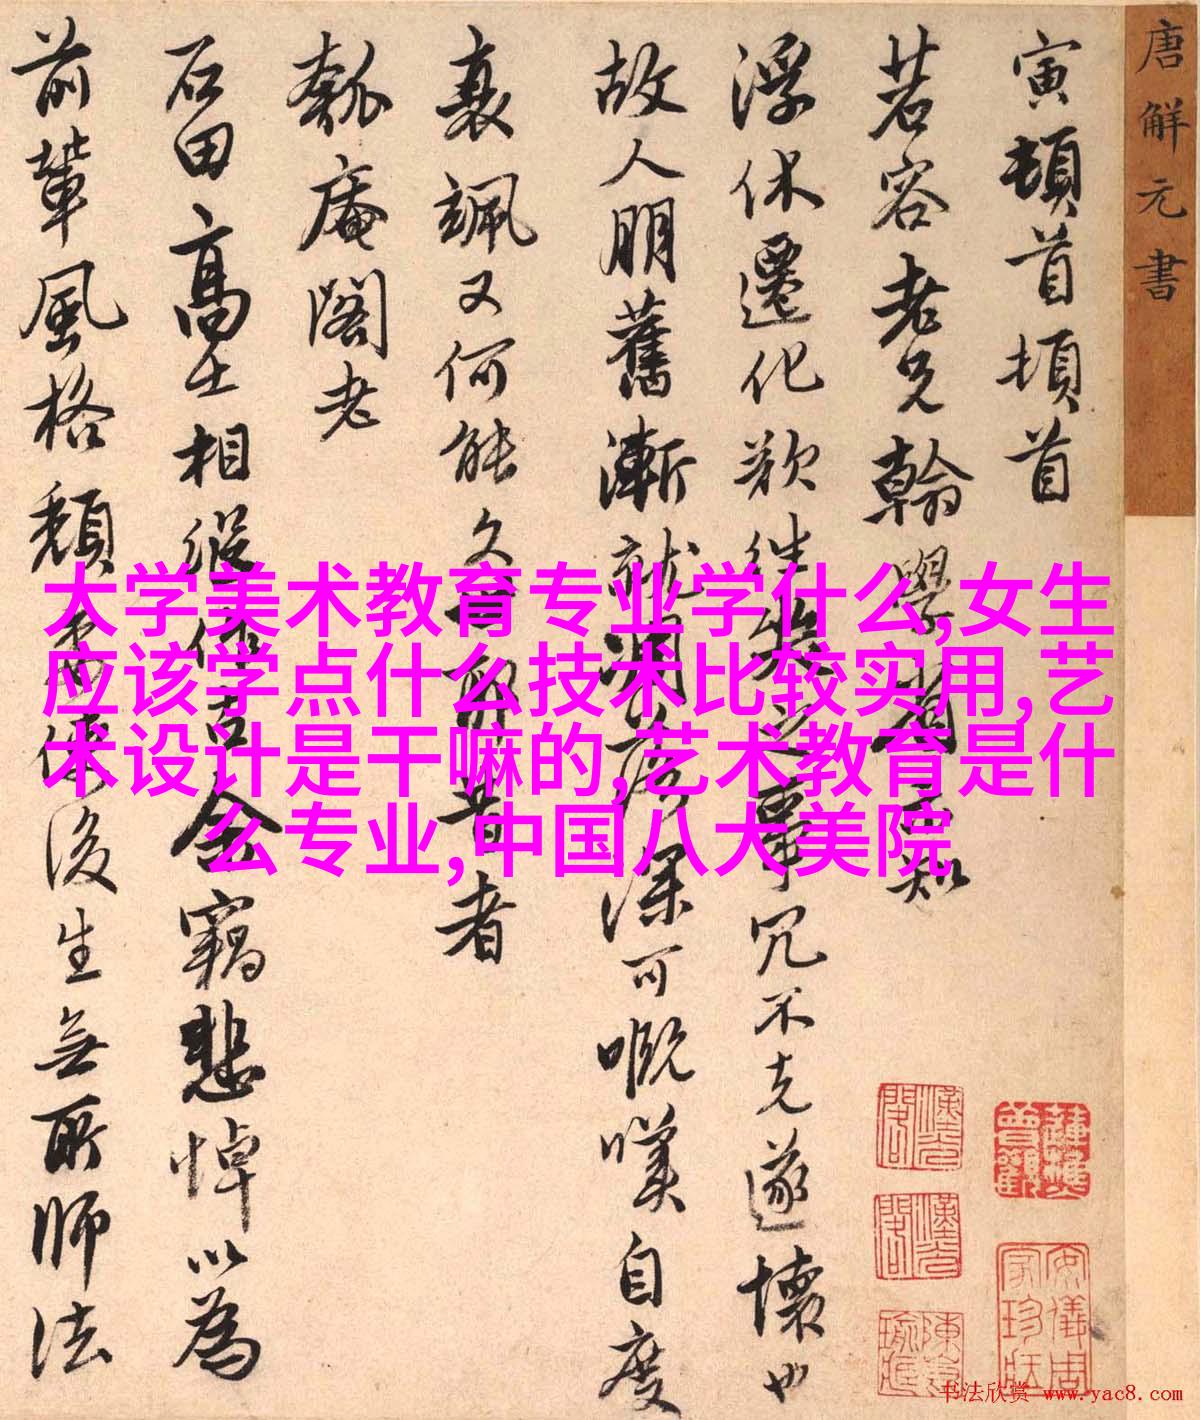 唐解元書
寅頓首頓首
容老兄翰學知
浮休遷化欲往奠之事冗不克遂懷也
故人朋舊漸就凋落深可嘅嘆自度
衰颯又何能久世耶昔者
瓠庵閣老
石田高士相繼作古今竊悲悼以為
前輩風格頹使後生無所師法
大学美术教育专业学什么,女生
应该学点什么技术比较实用,艺
术设计是干嘛的,艺术教育是什
么专业,中国八大美院
书法欣赏 www.yac8.com